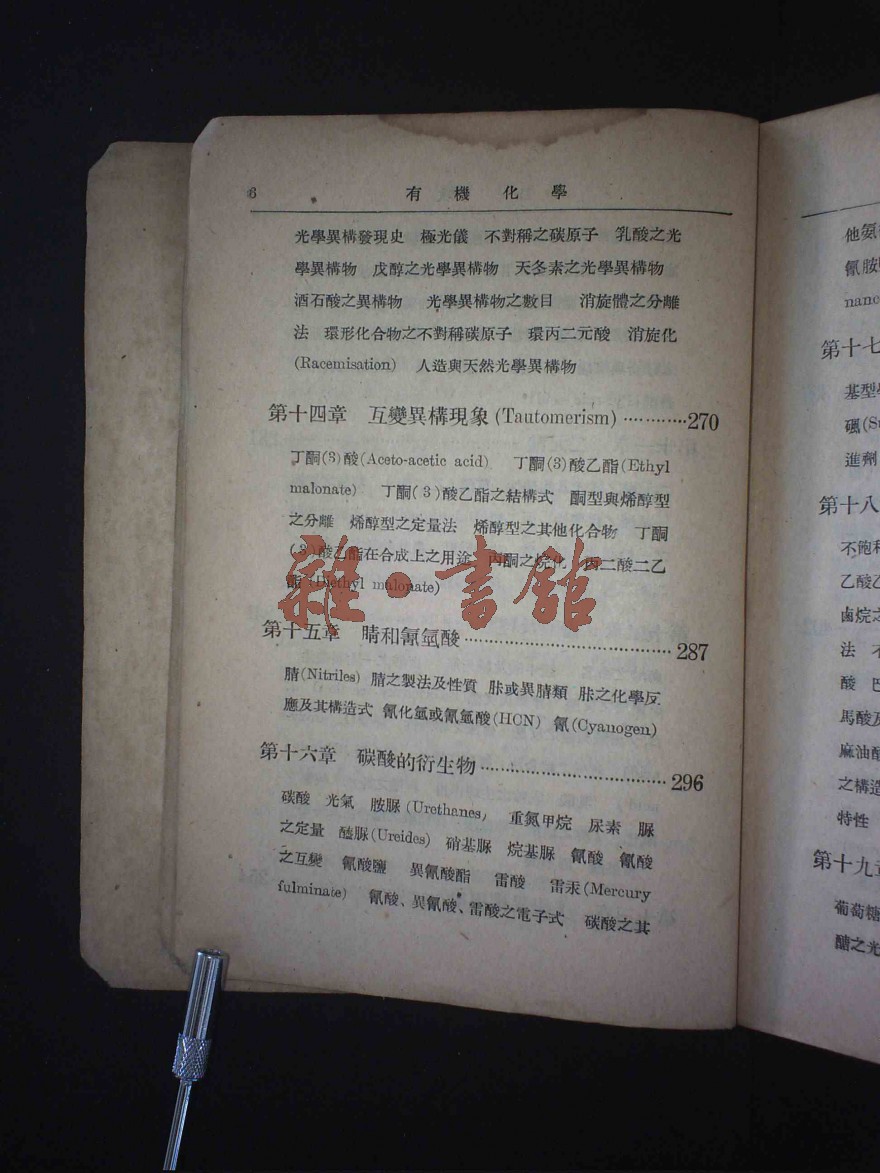 6 有機化學
光學異構發現史 極光儀 不對稱之碳原子 乳酸之光
學異構物 戊醇之光學異構物 天冬素之光學異構物
酒石酸之異構物 光學異構物之數目 消旋體之分離
法 環形化合物之不對稱碳原子 環丙二元酸 消旋化
(Racemisation) 人造與天然光學異構物
第十四章 互變異構現象(Tautomerism)············270
丁酮(3)酸(Aceto-acetic acid) 丁酮(3)酸乙酯(Ethyl
malonate) 丁酮(3)酸乙酯之結構式 酮型與烯醇型
之分離 烯醇型之定量法 烯醇型之其他化合物 丁酮
(3)酸乙酯在合成上之用途 丙酮之烷化 丙二酸二乙
酯(Diethyl malonate)
雜·書館
第十五章 腈和氰氫酸································287
腈(Nitriles) 腈之製法及性質 胩或異腈類 胩之化學反
應及其構造式 氰化氫或氰氫酸(HCN) 氰(Cyanogen)
第十六章 碳酸的衍生物································296
碳酸 光氣 胺脲(Urethanes) 重氮甲烷 尿素 脲
之定量 醯脲(Ureides) 硝基脲 烷基脲 氰酸 氰酸
之互變 氰酸鹽 異氰酸酯 雷酸 雷汞(Mercury
fulminate) 氰酸、異氰酸、雷酸之電子式 碳酸之其
他氨
氰胺
nanc
第十七
基型
碸(Su
進劑
第十八
不飽和
乙酸乙
鹵烷之
法 不
酸 巴
馬酸及
麻油酸
之構造
特性
第十九章
葡萄糖
醣之光